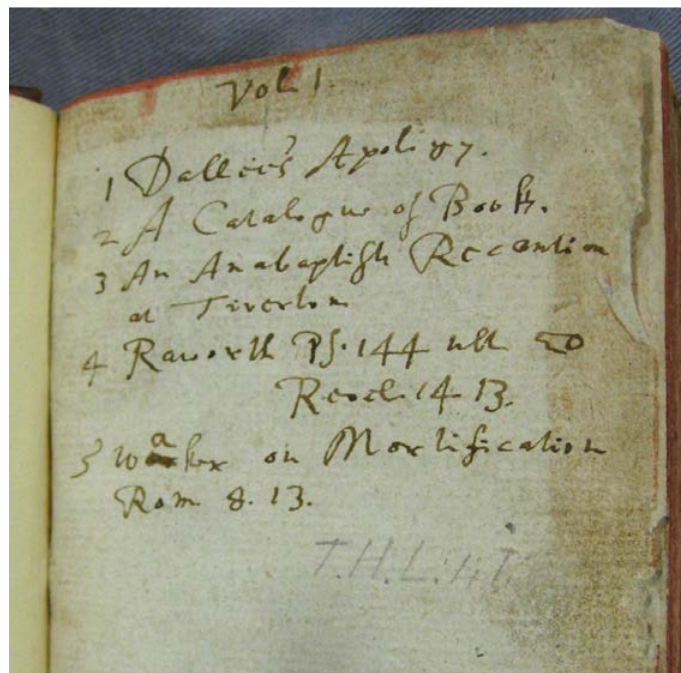 Vol. 1.
1 Dallee's Apoligy.
2 A Catalogue of Book.
3 An Anabaptists Recantion
at Tiverton
4 Raworth Ps. 144 ult
Revel. 14 13.
5 Waker on Mortification
Rom 8. 13.